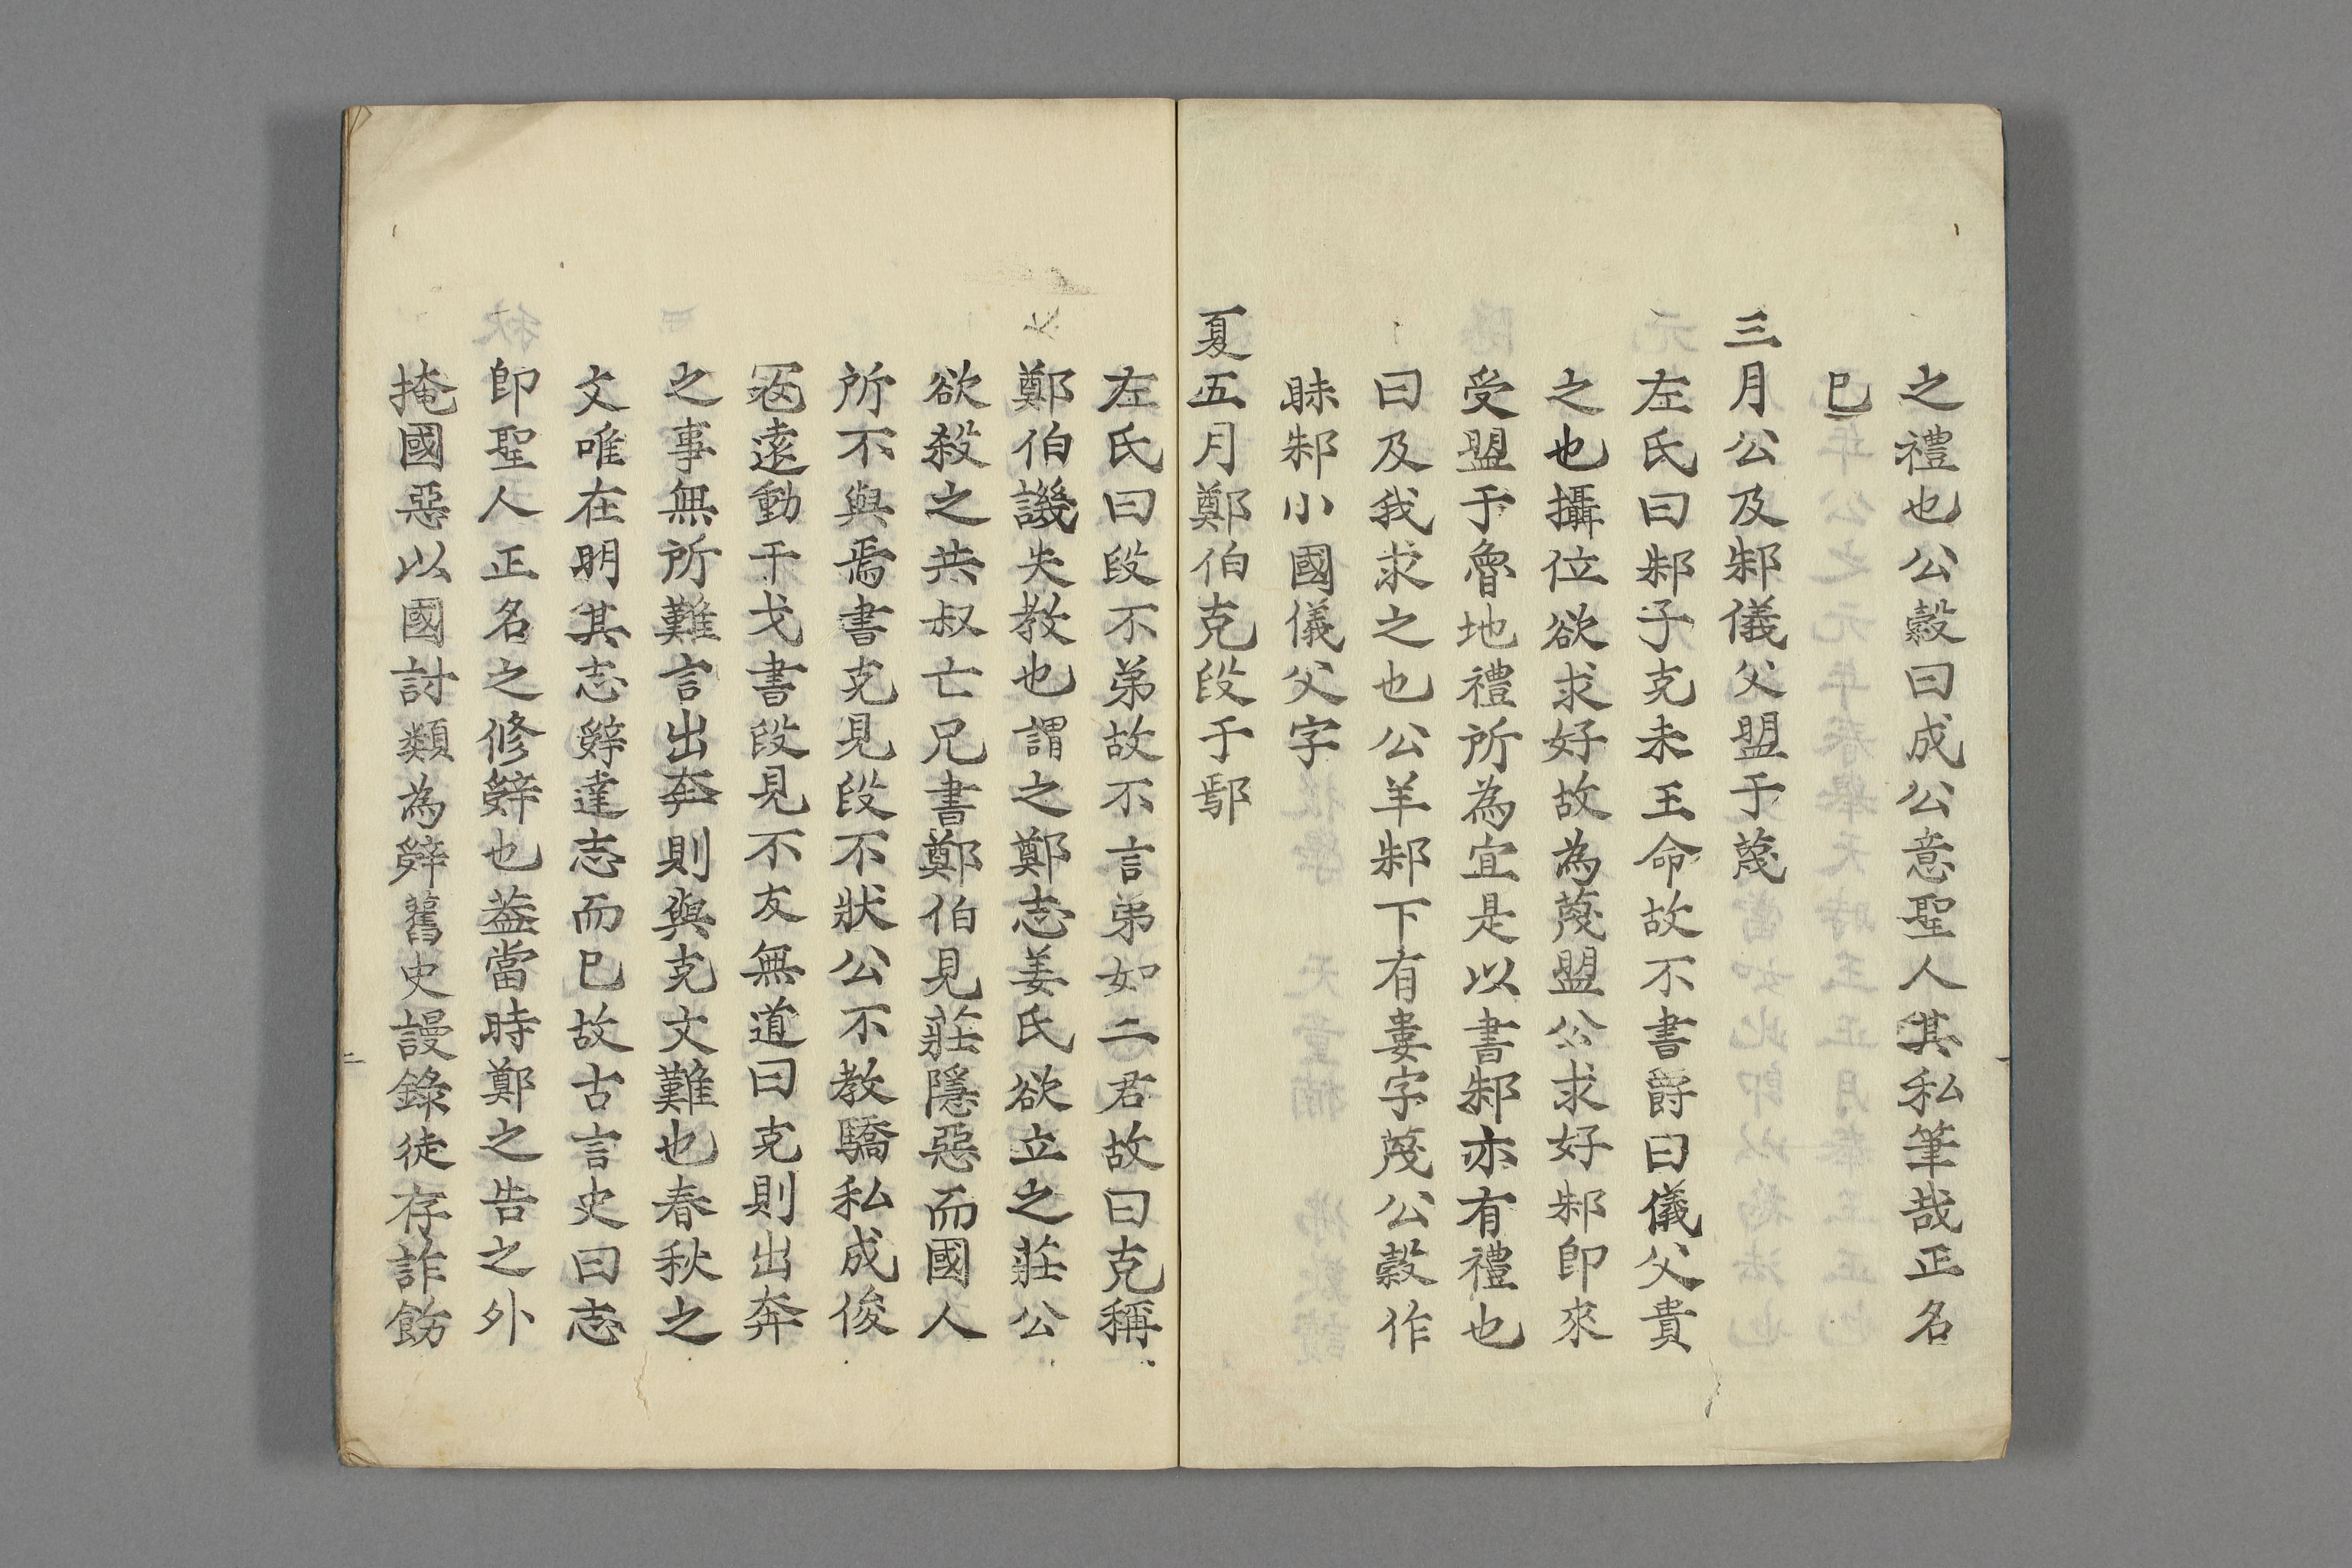 之禮也公穀曰成公意聖人其私筆哉正名
已
三月公及邾儀父盟于蔑
左氏曰邾子克未王命故不書爵曰儀父貴
之也攝位欲求好故為蔑盟公求好邾即來
受盟于魯地禮所為宜是以書邾亦有禮也
曰及我求之也公羊邾下有婁字蔑公穀作
眛邾小國儀父字
夏五月鄭伯克段于鄢
左氏曰段不弟故不言弟如二君故曰克稱
鄭伯譏失教也謂之鄭志姜氏欲立之莊公
欲殺之共叔亡兄書鄭伯見莊隱惡而國人
所不與焉書克見段不狀公不教驕私成俊
遠動干戈書段見不友無道曰克則出奔
之事無所難言出奔則與克文難也春秋之
文唯在明其志辤達志而已故古言史曰志
即聖人正名之修辤也葢當時鄭之告之外
掩國惡以國討類為辤舊史謾錄徒存詐餝